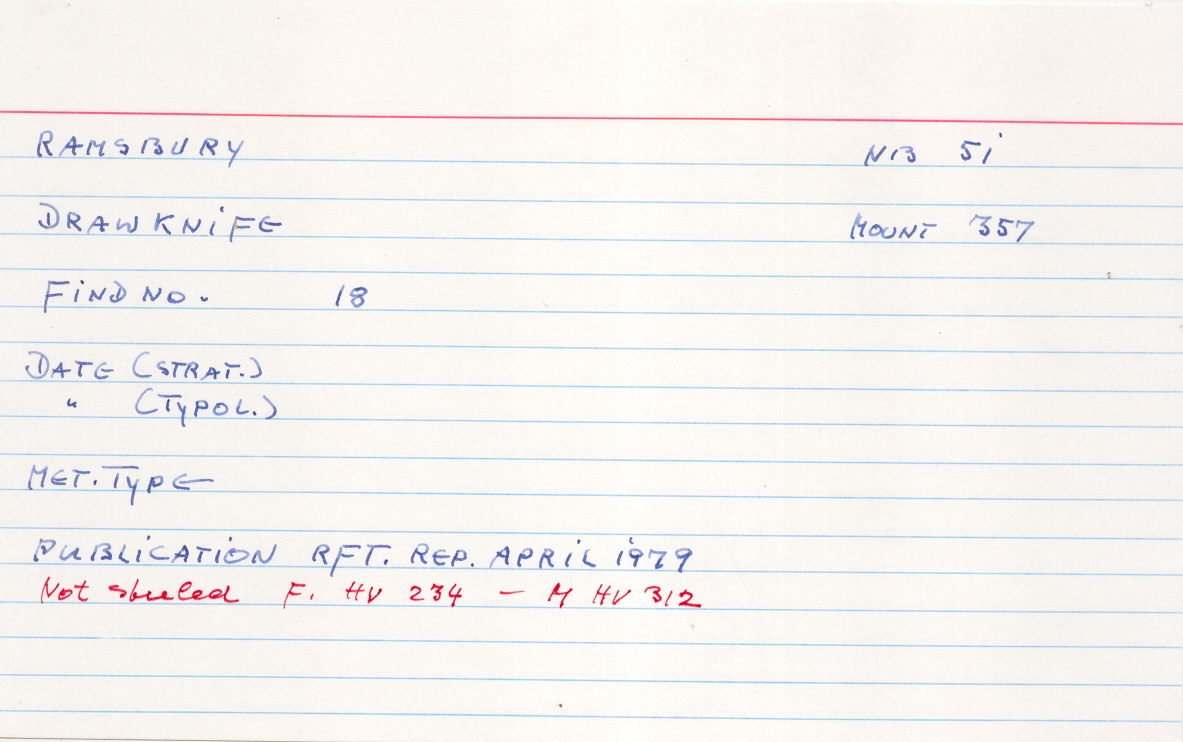 RAMSBURY NB 5i
DRAWKNIFE MOUNT 357
FIND NO. 18
DATE (STRAT.)
" (TYPOL.)
MET. TYPE
PUBLICATION RFT. REP. APRIL 1979
Not steeled F. HV 234 – M HV 312